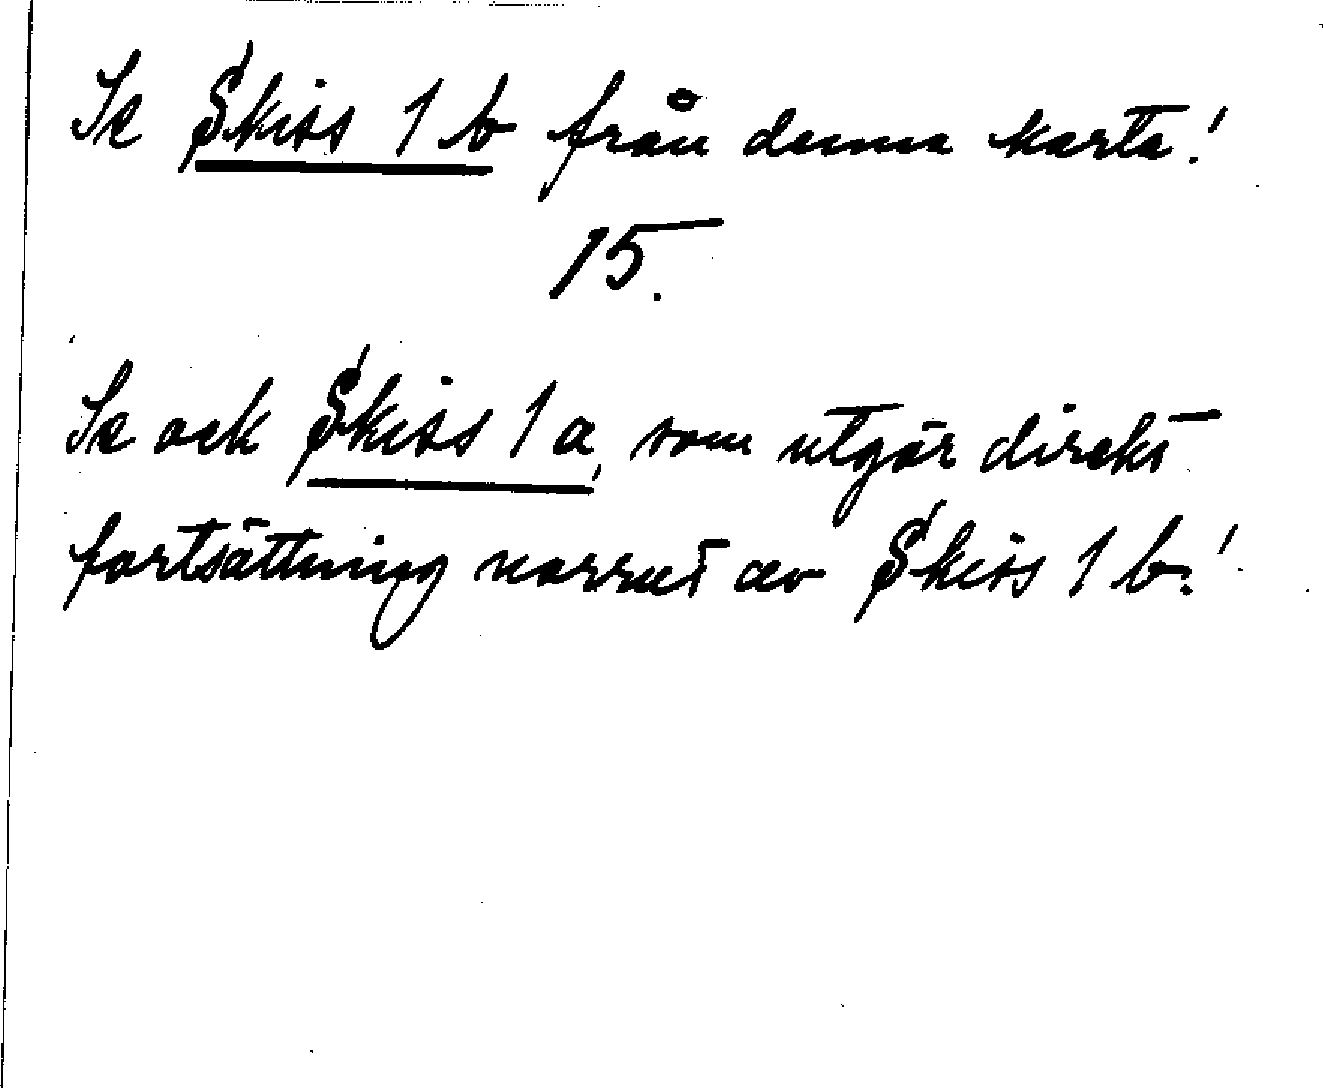 Se Skiss 1 b från denna karta!
15.
Se ock Skiss 1 a, som utgör direkt
fortsättning norrut av Skiss 1 b!